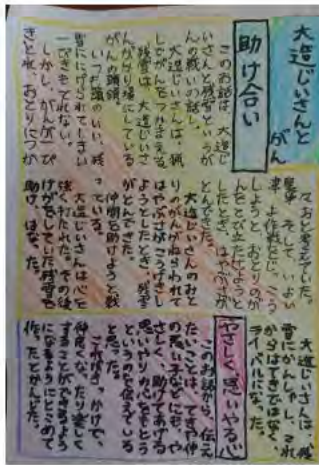 大造じいさんと
がん
助け合い
このお話は、大造じ
いさんと残雪というが
んの戦いの話し。
大造じいさんは、狐
しでがんをつかまえる。
残雪は、大造じいさ
んがかり場にしている
がんの頭領。
いつも頭のいい、残
雪ににげられてしまい
一ぴきもとれない。
しかし、がんが一ぴ
きとれ、おとりにつか
ておと考えていた。
そして、いよい
よ作戦どし、こう
しようと、おとりのが
んをとび立たせようと
したとき、はやぶさが
とんできた。
大造じいさんのおと
りのがんがねらわれて
はやぶさがこうげきし
ようとしたとき、残雪
がとんできた。
仲間を助けようと戦
っている。
大造じいさんは心を
強く打たれた。その後
けがをしていた残雪を
助け、はなった。
大造じいさんは、残
雪にかんしゃし、これ
からはてきではなく、
ライバルになった。
やさしく、思いやる心
このお話から、伝え
たいことは、てきや仲
の悪い子などにも、や
さしく、助けてあげる
思いやりの心をもとう
というのを伝えている
と思った。
これがきっかけで、
仲良くなったり、楽しく
することができるよう
になるようにとこめて
作ったとかんじた。